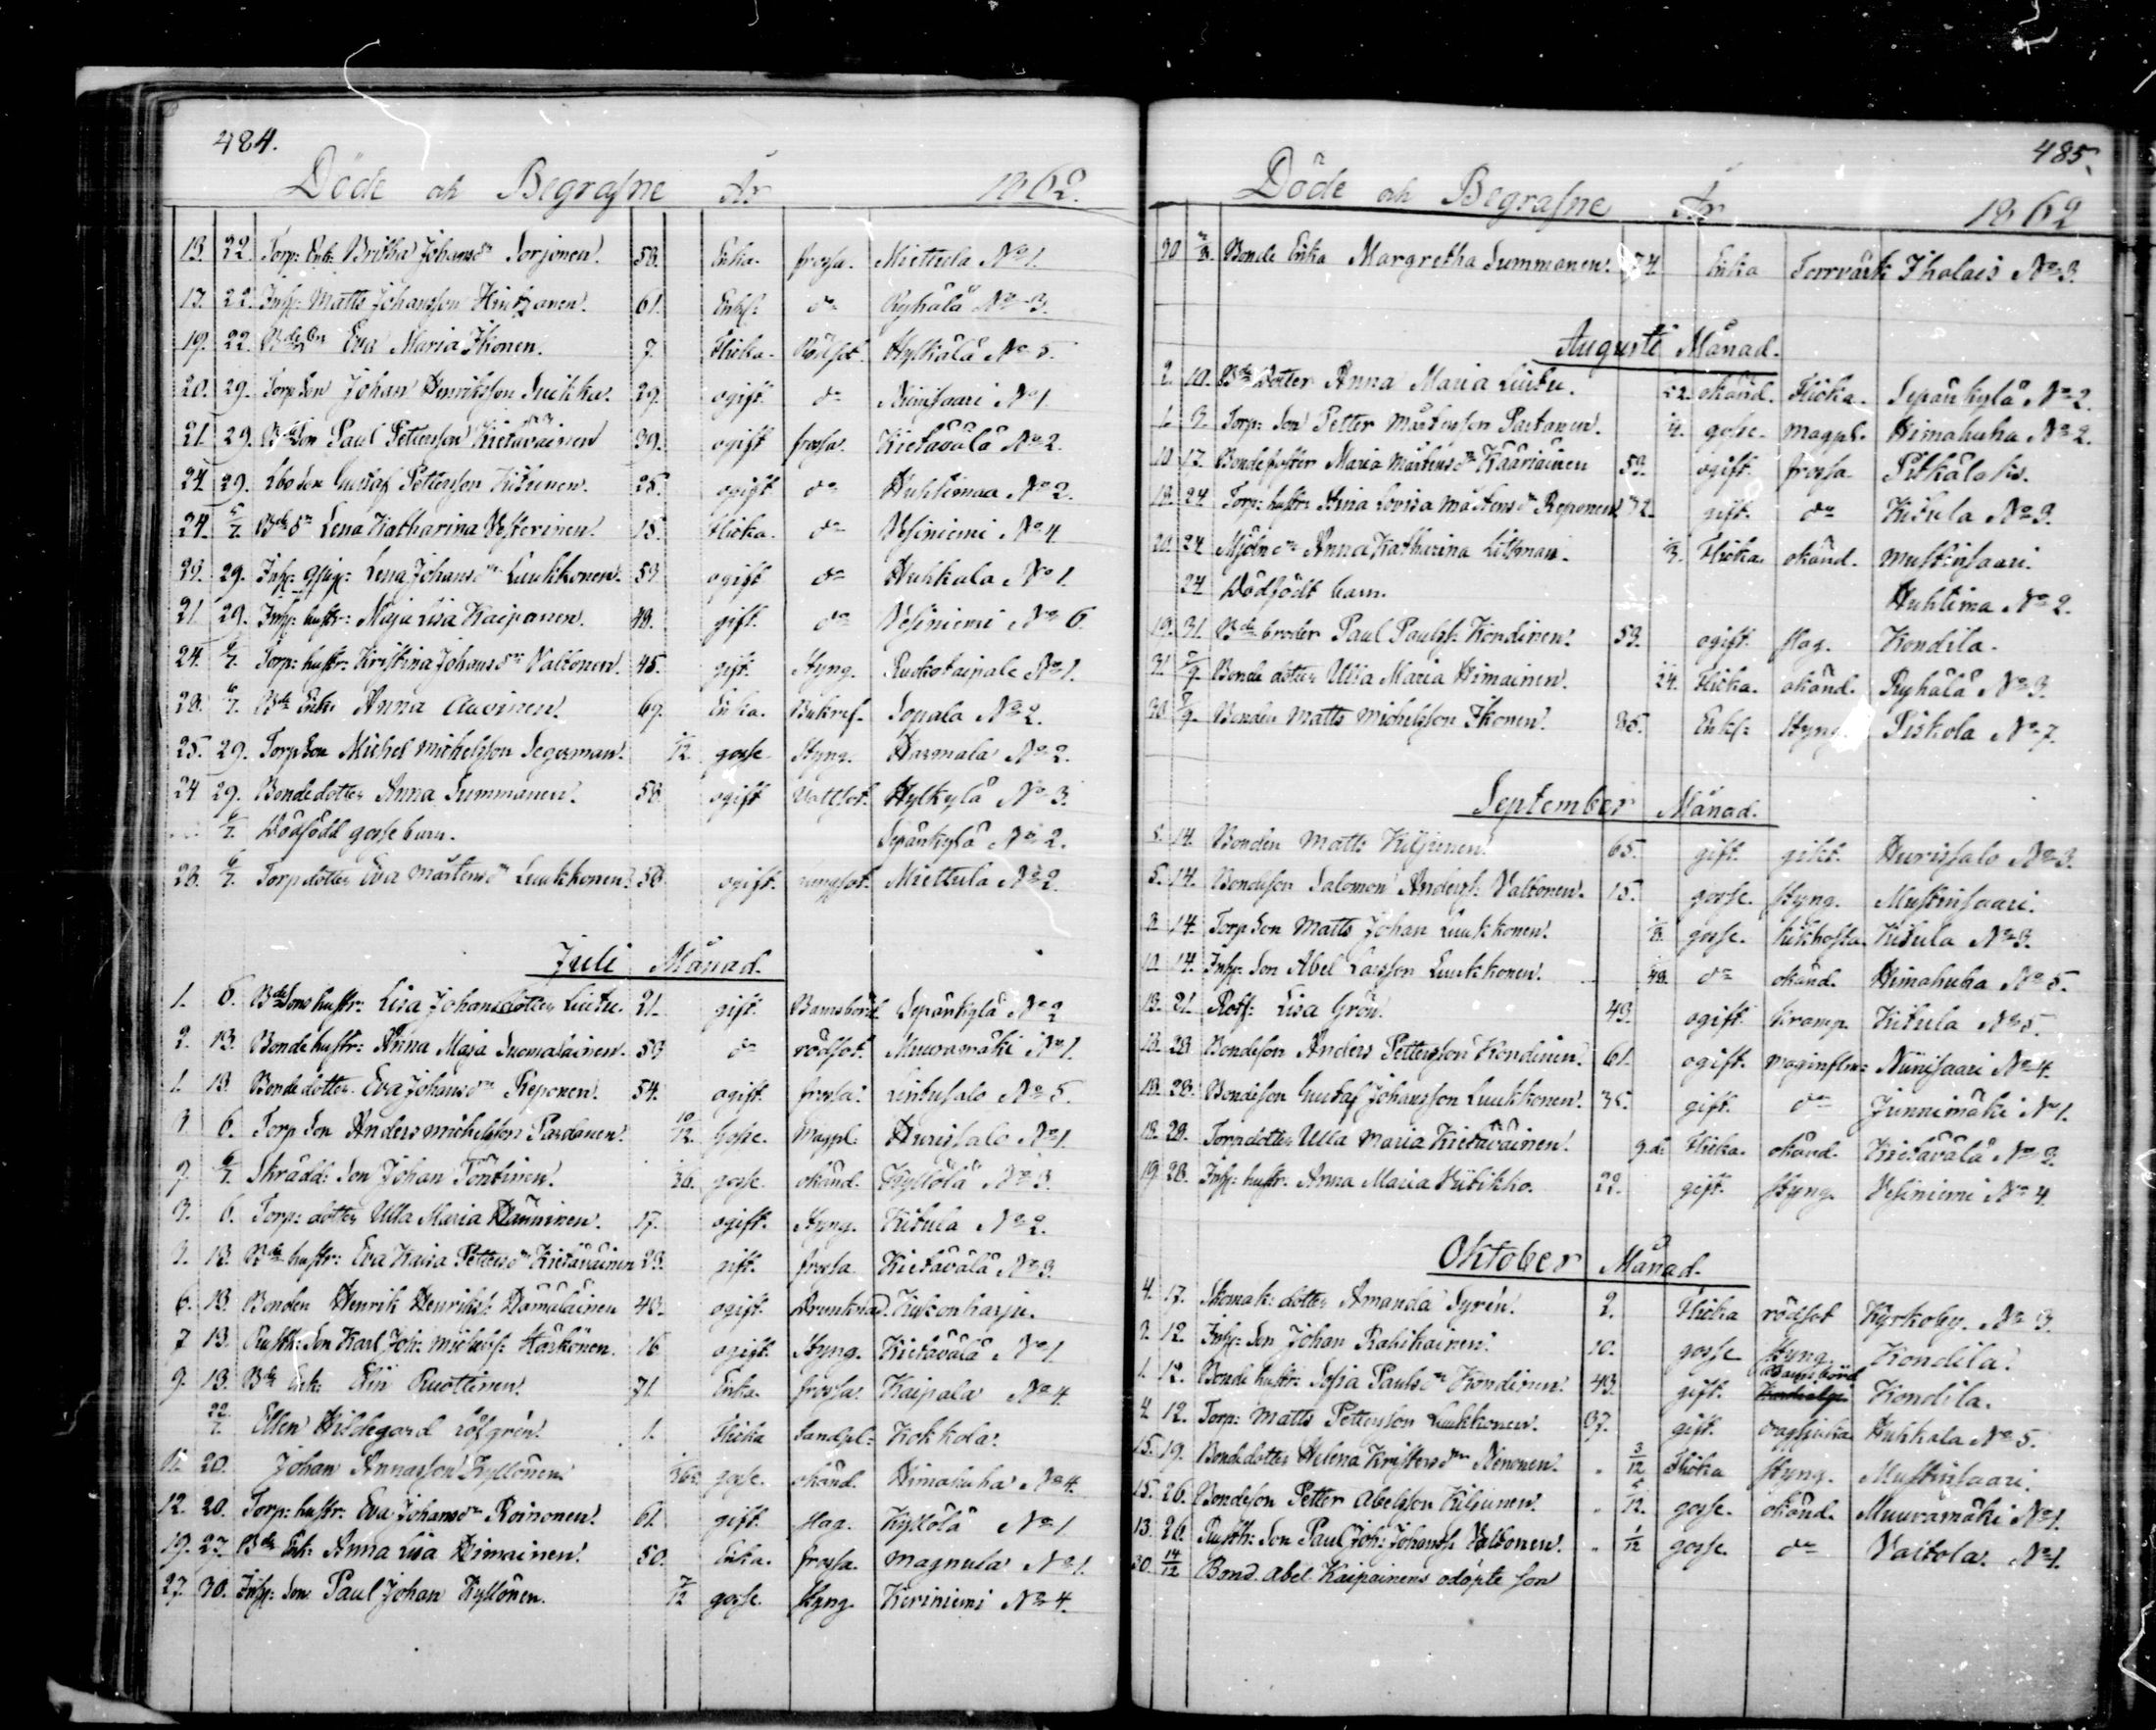 484.
Döde och Begrafne År 1862.
13. 22. Torp: Enk: Britha Johansdr Sorjonen. 58. Enka. frossa. Miettula No 1.
17. 22. Inh: Matts Johansson Hintzanen. 61. Enkl: do Ryhälä No 3.
19. 22. Bde Eva Maria Ikonen. 7. Flicka. Rödsot. Hylkälä No 5.
20. 29. Torp Son Johan Henriksson Suikka. 29. ogift. do Niinisaari No 1.
21. 29. Bde Son Paul Pettersson Kietäväinen 39. ogift frossa. Kietävälä No 2.
24. 29. Lbo Son Gustaf Pettersson Kiiunen. 25. ogift do Huhtimaa No 2.
24. 6/7. Bde dr Lena Katharina Vesterinen. 15. Flicka. do Vesiniemi No 4.
23. 29. Inh: Lena Johansdr Luukkonen. 59. ogift do Huhkala No 1.
21. 29. Inh: hustr: Maja Lisa Kaipanen. 48. gift. do Vesiniemi No 6.
24. 6/7. Torp: hustr: Kristina Johansdr Valtonen. 45. gift. Styng. Ruokotaipale No 1.
28. 6/7. Bde Enka Anna Auvinen. 69. Enka. Bukref. Sopala No 2.
25. 29. Torp Son Michel Michelsson Segerman. /12 gosse Styng. Harmala No 2.
24 29. Bondedotter Anna Summanen. 58. ogift Vattsot. Hylkylä No 3.
6/7. Dödfödd gossebarn. Sepänkylä No 2.
26. 6/7. Torpdotter Eva Mårtensdr Luukkonen. 56. ogift. lungsot. Miettula No 2.
Juli Månad.
1. 6. Bde Sons hustr: Lisa Johansdotter Liutu. 21. gift. Barnsbörd. Sepänkylä No 2
2. 13. Bonde hustr: Anna Maja Suomalainen. 53 do rödsot. Muuramäki No 1.
1. 13. Bonde dotter Eva Johansdr Reponen. 54. ogift. frossa. Lintusalo No 5.
3 6. Torp Son Anders Michelsson Pardanen. 10/12. Gosse. Magpl. Hurissalo No 1.
9. 6/7. Skrädd: Son Johan Pöntinen. 26. gosse. okänd. Kyllölä No 3.
3. 6. Torp: dotter Ulla Maria Hänninen. 17. ogift. Styng. Kitula No 2.
9. 13. Bde hustr: Eva Kaisa Pettersdr Kietäväinen 23. gift. frossa Kietävälä No 3.
6. 13. Bonden Henrik Henriks: Hämäläinen 43. ogift. Drunknad.
7 13. Rusth: Son Karl Joh: Michelss: Härkönen. 16 ogift. Styng. Kietävälä No 1.
9. 13. Bde Enk: Elin Ruottinen. 71. Enka. frossa. Kaipala No 4
22/7. Ellen Hildegard Löfgrén. 1. Flicka Landpl: Kokkola.
15. 20. Johan Annasson Kyllönen. gosse. okänd. Himahuha No 4.
12. 20. Torp: hustr: Eva Johansdr Roinonen. 61. gift. slag. Kyllölä No 1
19. 27. Bde Enk: Anna Lisa Himainen. 50. Enka. frossa. Magnula No 1.
27. 30. Inh: Son Paul Johan Kyllönen. 7/12 gosse. Styng. Keriniemi No 4.
485.
Döde och Begrafne År 1862
20 /8. Bonde Enka Margretha Summanen. 74 Enka Torrvärk Ihalais No 3.
Augusti Månad.
2. 10. Bde dotter Anna Maria Liutu. 52. okänd. Flicka. Sepänkylä No 2.
1. 3. Torp: Son Petter Mårtensson Partanen. gosse. magpl. Himahuha No 2.
10 17. Bondesyster Maria Mårtensdr Kääriäinen 53. ogift. frossa. Pitkälaks.
18. 24 Torp: hustr: Stina Lovisa Mårtensdr Reponen. 32. gift. do Kitula No 3.
20. 24 Mjöln dr Anna Katharina Litsman. Flicka. okänd. Mustinsaari.
24 Dödfödt barn. Huhtima No 2.
19. 31. Bde broder Paul Pauls: Kondinen. 53. ogift. slag. Kondila.
31. 7/9. Bonde dotter Ulla Maria Himainen. 24. Flicka. okänd. Ryhälä No 3.
30. 7/9. Bonden Matts Michelsson Ikonen. 86. Enkl: Styng. Piskola No 7.
September Månad.
5. 14. Bonden Matts Kiljunen. 65. gift. gikt. Hurissalo No 3.
5. 14. Bondeson Salomon Anders: Valtonen. 15. gosse. Styng. Mustinsaari.
8. 14. Torp Son Matts Johan Luukkonen. gosse. kikhosta. Kitula No 3.
10. 14. Inh: Son Abel Larsson Luukkonen. 48. do okänd. Himahuha No 5.
13. 21. Rotf: Lisa Grön. 43. ogift. Kramp. Kitula No 5.
13. 28 Bondeson Anders Pettersson Kondinen. 61. ogift. Maginflm: Niinisaari No 4.
18. 28. Bondeson Gustaf Johansson Luukkonen. 35. gift. do Junnimäki No 1.
18. 29. Torpdotter Ulla Maria Kietäväinen. 9.d: Flicka. okänd. Kietävälä No 2.
19 28. Inh: hustr: Anna Maria Viitikko. 22. gift. Styng. Vesiniemi No 4
Oktober Månad.
4. 17. Skomak: dotter Amanda Syrén. 2. Flicka rödsot Kyrkoby. No 3.
9. 12. Inh: Son Johan Rahikainen. 10. gosse Styng. Kondila.
1. 12. Bonde hustr: Sofia Paulsdr Kondinen. 43. gift. Barnsbörd Kondila.
4 12. Torp: Matts Pettersson Luukkonen. 37. gift. Magsjuka Huhkala No 5.
15. 19. Bondedotter Helena Kristersdr Nenonen. " 3/12 Flicka Styng. Mustinsaari.
15. 26. Bondeson Petter Abelsson Kiljunen. " 5/12. gosse. okänd. Muuramäki No 1.
13. 26. Rusth: Son Paul Joh: Johanss Valtonen. " 1/12 gosse. do Vaitola. No 1.
30. 14/12 Bond. Abel Kaipainens odöpte son